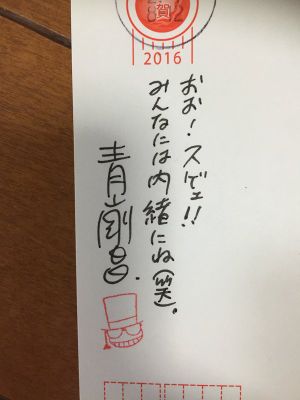 賀
2016
おお!スゲェ!!
みんなには内緒にね(笑).
青山剛昌.